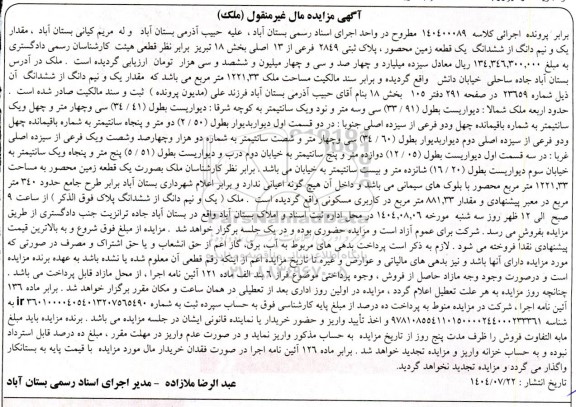 آگهی مزایده مال غیرمنقول (ملک)
برابر پرونده اجرائی کلاسه ۱۴۰۴۰۰۰۸۹ مطروح در واحد اجرای اسناد رسمی بستان آباد ، علیه حبیب آذرمی بستان آباد و له مریم کیانی بستان آباد ، مقدار
یک و نیم دانگ از ششدانگ یک قطعه زمین محصور ، پلاک ثبتی ۲۸۴۹ فرعی از ۱۳ اصلی بخش ۱۸ تبریز برابر نظر قطعی هیئت کارشناسان رسمی دادگستری
به مبلغ ۱۳۴,۳۴۶,۳۰۰,۰۰۰ ریال معادل سیزده میلیارد و چهار صد و سی و چهار میلیون و ششصد و سی هزار تومان ارزیابی گردیده است . ملک در آدرس
بستان آباد جاده ساحلی خیابان دانش واقع گردیده و برابر سند مالکیت مساحت ملک ۱۲۲۱,۳۳ متر مربع می باشد که مقدار یک و نیم دانگ از ششدانگ آن
ذیل شماره ۲۳۶۵۹ در صفحه ۲۹۱ دفتر ۱۰۵ بخش ۱۸ بنام آقای حبیب آذرمی بستان آباد فرزند علی (مدیون پرونده ) ثبت و سند مالکیت صادر شده است .
حدود اربعه ملک شمالا : دیواریست بطول (۹۱ / ۳۳) سی وسه متر و نود ویک سانتیمتر به کوچه شرقا : دیواریست بطول (۴۱ / ۳۴) سی وچهار متر و چهل ویک
سانتیمتر به شماره باقیمانده چهل ودو فرعی از سیزده اصلی جنوبا : در دو قسمت اول دیواریدیوار بطول (۵۰ / ۲) دو متر و پنجاه سانتیمتر به شماره باقیمانده چهل
ودو فرعی از سیزده اصلی دوم دیواریدیوار بطول (۶۰ / ۳۴) سی وچهار متر و شصت سانتیمتر به شماره دو هزار وچهارصد وشصت ویک فرعی از سیزده اصلی
غربا : در سه قسمت اول دیواریست بطول (۰۵ / ۱۲) دوازده متر و پنج سانتیمتر به خیابان دوم درب و دیواریست بطول (۵۱ / ۵) پنج متر و پنجاه ویک سانتیمتر به
خیابان سوم دیواریست بطول (۲۰ / ۱۶) شانزده متر و بیست سانتیمتر به خیابان می باشد . برابر نظر کارشناسان ملک بصورت یک قطعه زمین محصور به مساحت
۱۲۲۱,۳۳ متر مربع محصور با بلوک های سیمانی می باشد و داخل آن هیچ گونه اعیانی ندارد و برابر اعلام شهرداری بستان آباد برابر طرح جامع حدود ۳۴۰ متر
مربع در معبر پیشنهادی و مقدار ۸۸۱,۳۳ متر مربع در کاربری مسکونی واقع گردیده است . ملک ( یک و نیم دانگ از ششدانگ پلاک فوق الذکر ) از ساعت ۹
صبح الی ۱۲ ظهر روز سه شنبه مورخه ۱۴۰۴,۰۸,۰۶ در محل اداره ثبت اسناد و املاک بستان آباد واقع در بستان آباد جاده ترانزیت جنب دادگستری از طریق
مزایده بفروش می رسد . شرکت برای عموم آزاد است و مزایده حضوری بوده و در یک جلسه برگزار خواهد شد . مزایده از مبلغ فوق شروع و به بالاترین قیمت
پیشنهادی نقدا فروخته می شود . لازم به ذکر است پرداخت بدهی های مربوط به آب، برق، گاز اعم از حق انشعاب و یا حق اشتراک و مصرف در صورتی که
مورد مزایده دارای آنها باشد و نیز بدهی های مالیاتی و عوارض و غیره تا تاریخ مزایده اعم از اینکه رقم قطعی آن معلوم شده یا نشده باشد به عهده برنده مزایده
است و درصورت وجود وجه مازاد حاصل از فروش ، وجوه پرداختی موضوع فراز ۹ بند الف ماده ۱۲۱ آئین نامه اجرا ، از محل مازاد قابل پرداخت می باشد .
چنانچه روز مزایده به هر علت تعطیل اعلام گردد ، مزایده در اولین روز اداری بعد از تعطیلی در همان ساعت و مکان مقرر برگزار خواهد شد . برابر ماده ۱۳۶
آئین نامه اجرا ، شرکت در مزایده منوط به پرداخت ده درصد از مبلغ پایه کارشناسی فوق به حساب سپرده ثبت به شماره
مابه التفاوت فروش را ظرف مدت پنج روز از تاریخ مزایده به حساب مذکور واریز نماید و در صورت عدم واریز در مهلت مقرر ، مبلغ ده درصد قابل استرداد
نبوده و به حساب خزانه واریز و مزایده تجدید خواهد شد . برابر ماده ۱۲۶ آئین نامه اجرا در صورت فقدان خریدار مال مورد مزایده با قیمت پایه به بستانکار
واگذار می گردد و مزایده تجدید نخواهد گردید.
تاریخ انتشار : ۱۴۰۴/۰۷/۲۲
عبد الرضا ملازاده - مدیر اجرای اسناد رسمی بستان آباد